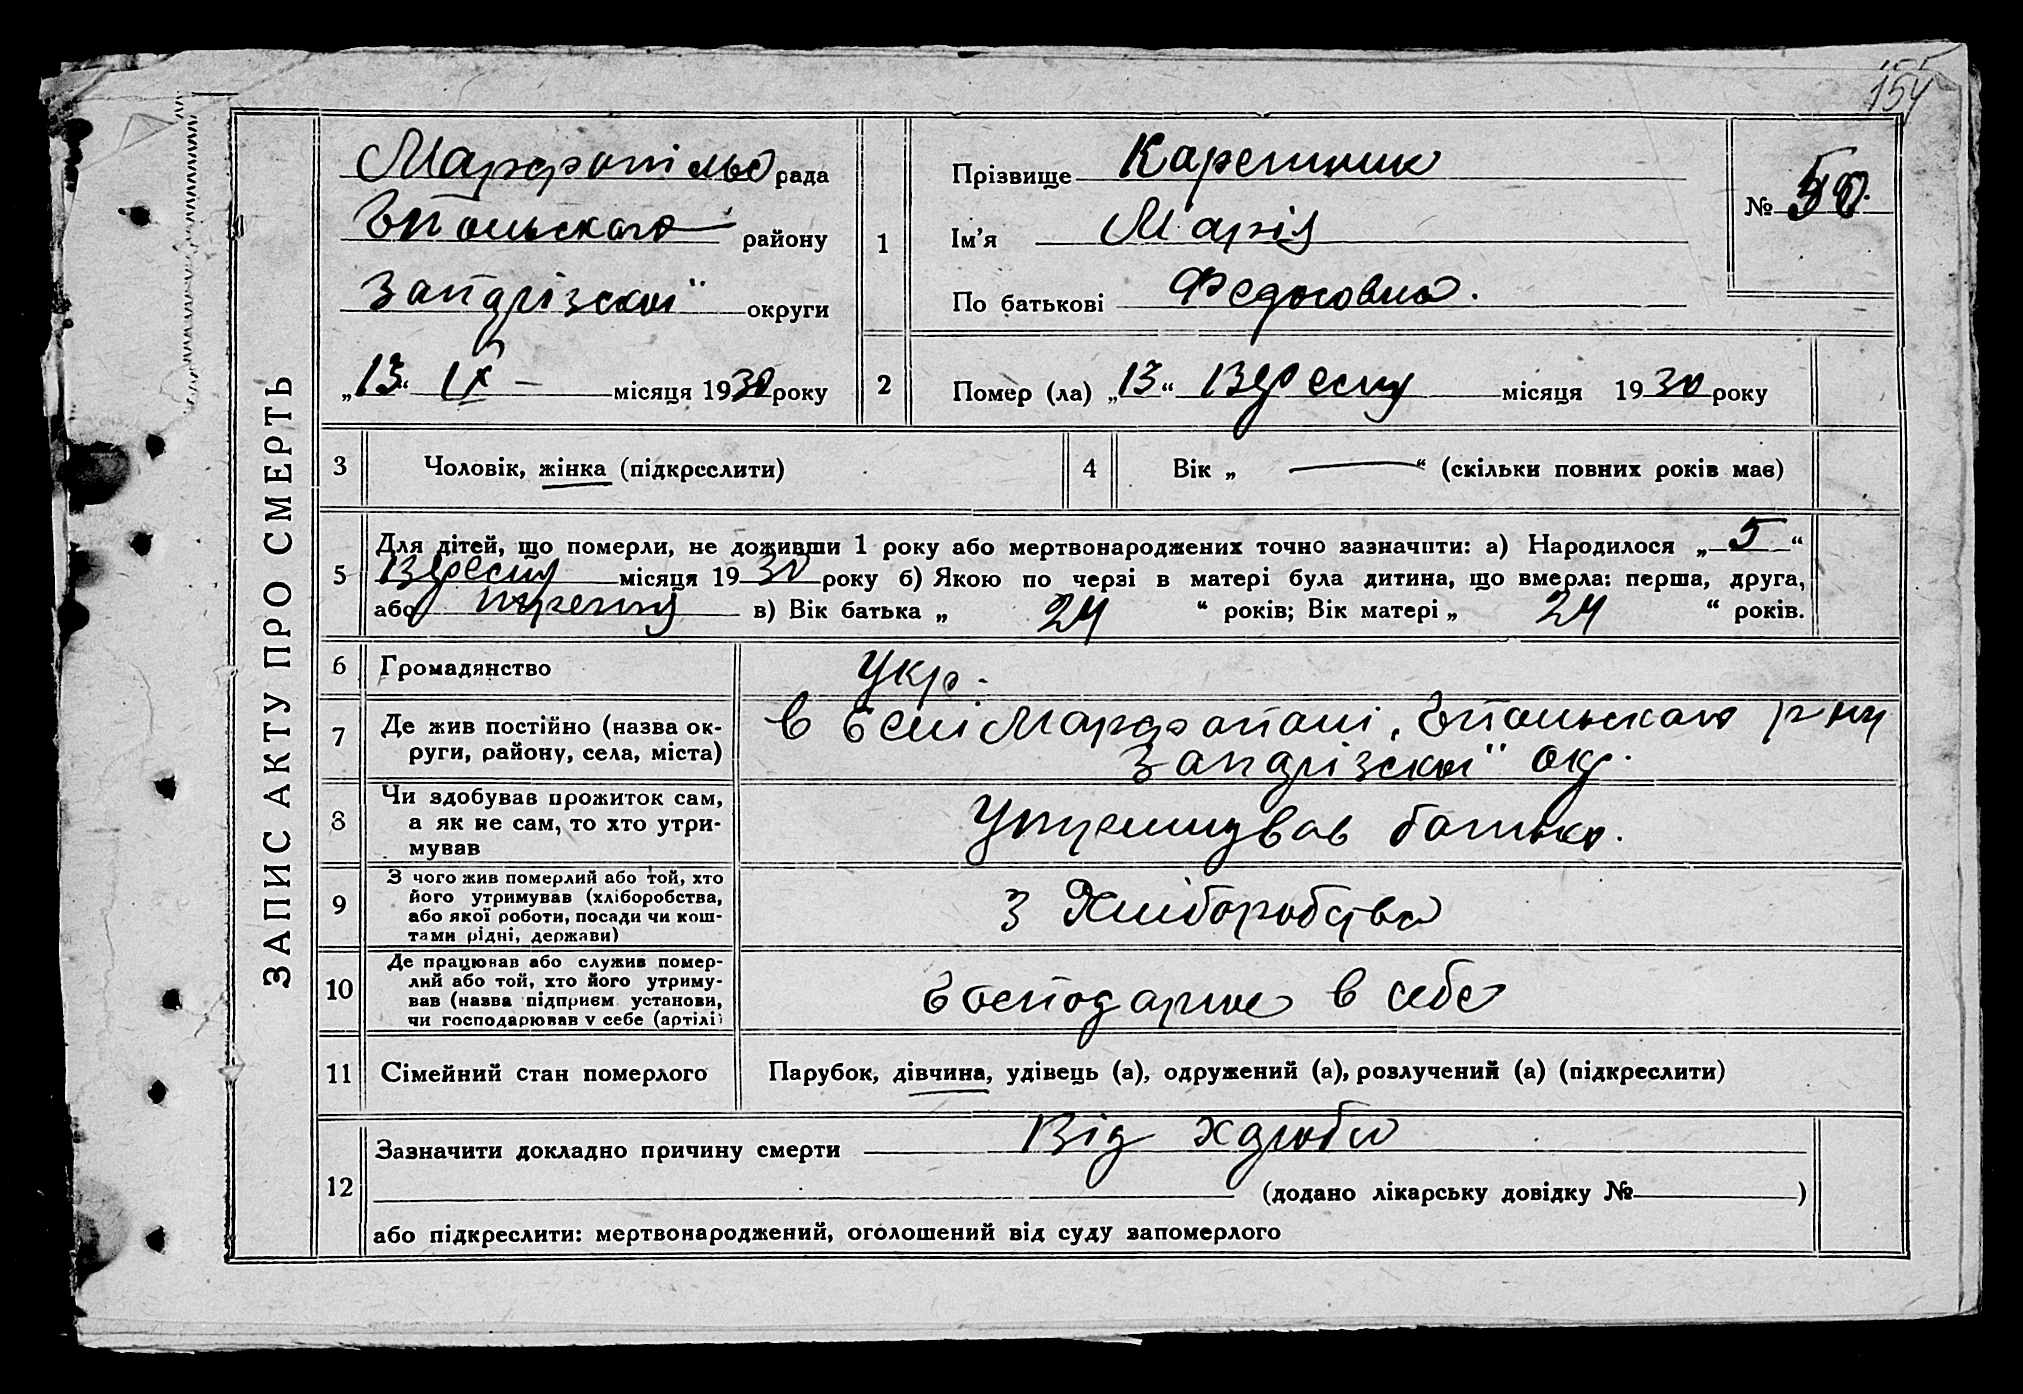 154
ЗАПИС АКТУ ПРО СМЕРТЬ
Марфопільс рада
Гпольского району
Запорізскої округи
„13“ IX – місяця 1930 року
1
Прізвище Каретник
Ім’я Марія
По батькові Федосовна.
№ 50.
2
Помер (ла) „13“ Вересня місяця 1930 року
3
Чоловік, жінка (підкреслити)
4
Вік „ — “ (скільки повних років має)
5
Для дітей, що померли, не доживши 1 року або мертвонароджених точно зазначити: а) Народилося „ 5 “
Вересня місяця 1930 року б) Якою по черзі в матері була дитина, що вмерла: перша, друга,
або третя в) Вік батька „ 24 “ років; Вік матері „ 24 “ років.
6
Громадянство
Укр.
7
Де жив постійно (назва ок-
руги, району, села, міста)
в селі Марфополі, Гпольского р-ну
Запорізскої окр.
8
Чи здобував прожиток сам,
а як не сам, то хто утри-
мував
Утримував батько.
9
З чого жив померлий або той, хто
його утримував (хліборобства,
або якої роботи, посади чи кош-
тами рідні, держави)
З Хліборобства
10
Де працював або служив помер-
лий або той, хто його утриму-
вав (назва підприєм установи,
чи господарював у себе (артілі)
Господарює в себе
11
Сімейний стан померлого
Парубок, дівчина, удівець (а), одружений (а), розлучений (а) (підкреслити)
12
Зазначити докладно причину смерти Від хдроби
(додано лікарську довідку № )
або підкреслити: мертвонароджений, оголошений від суду запомерлого